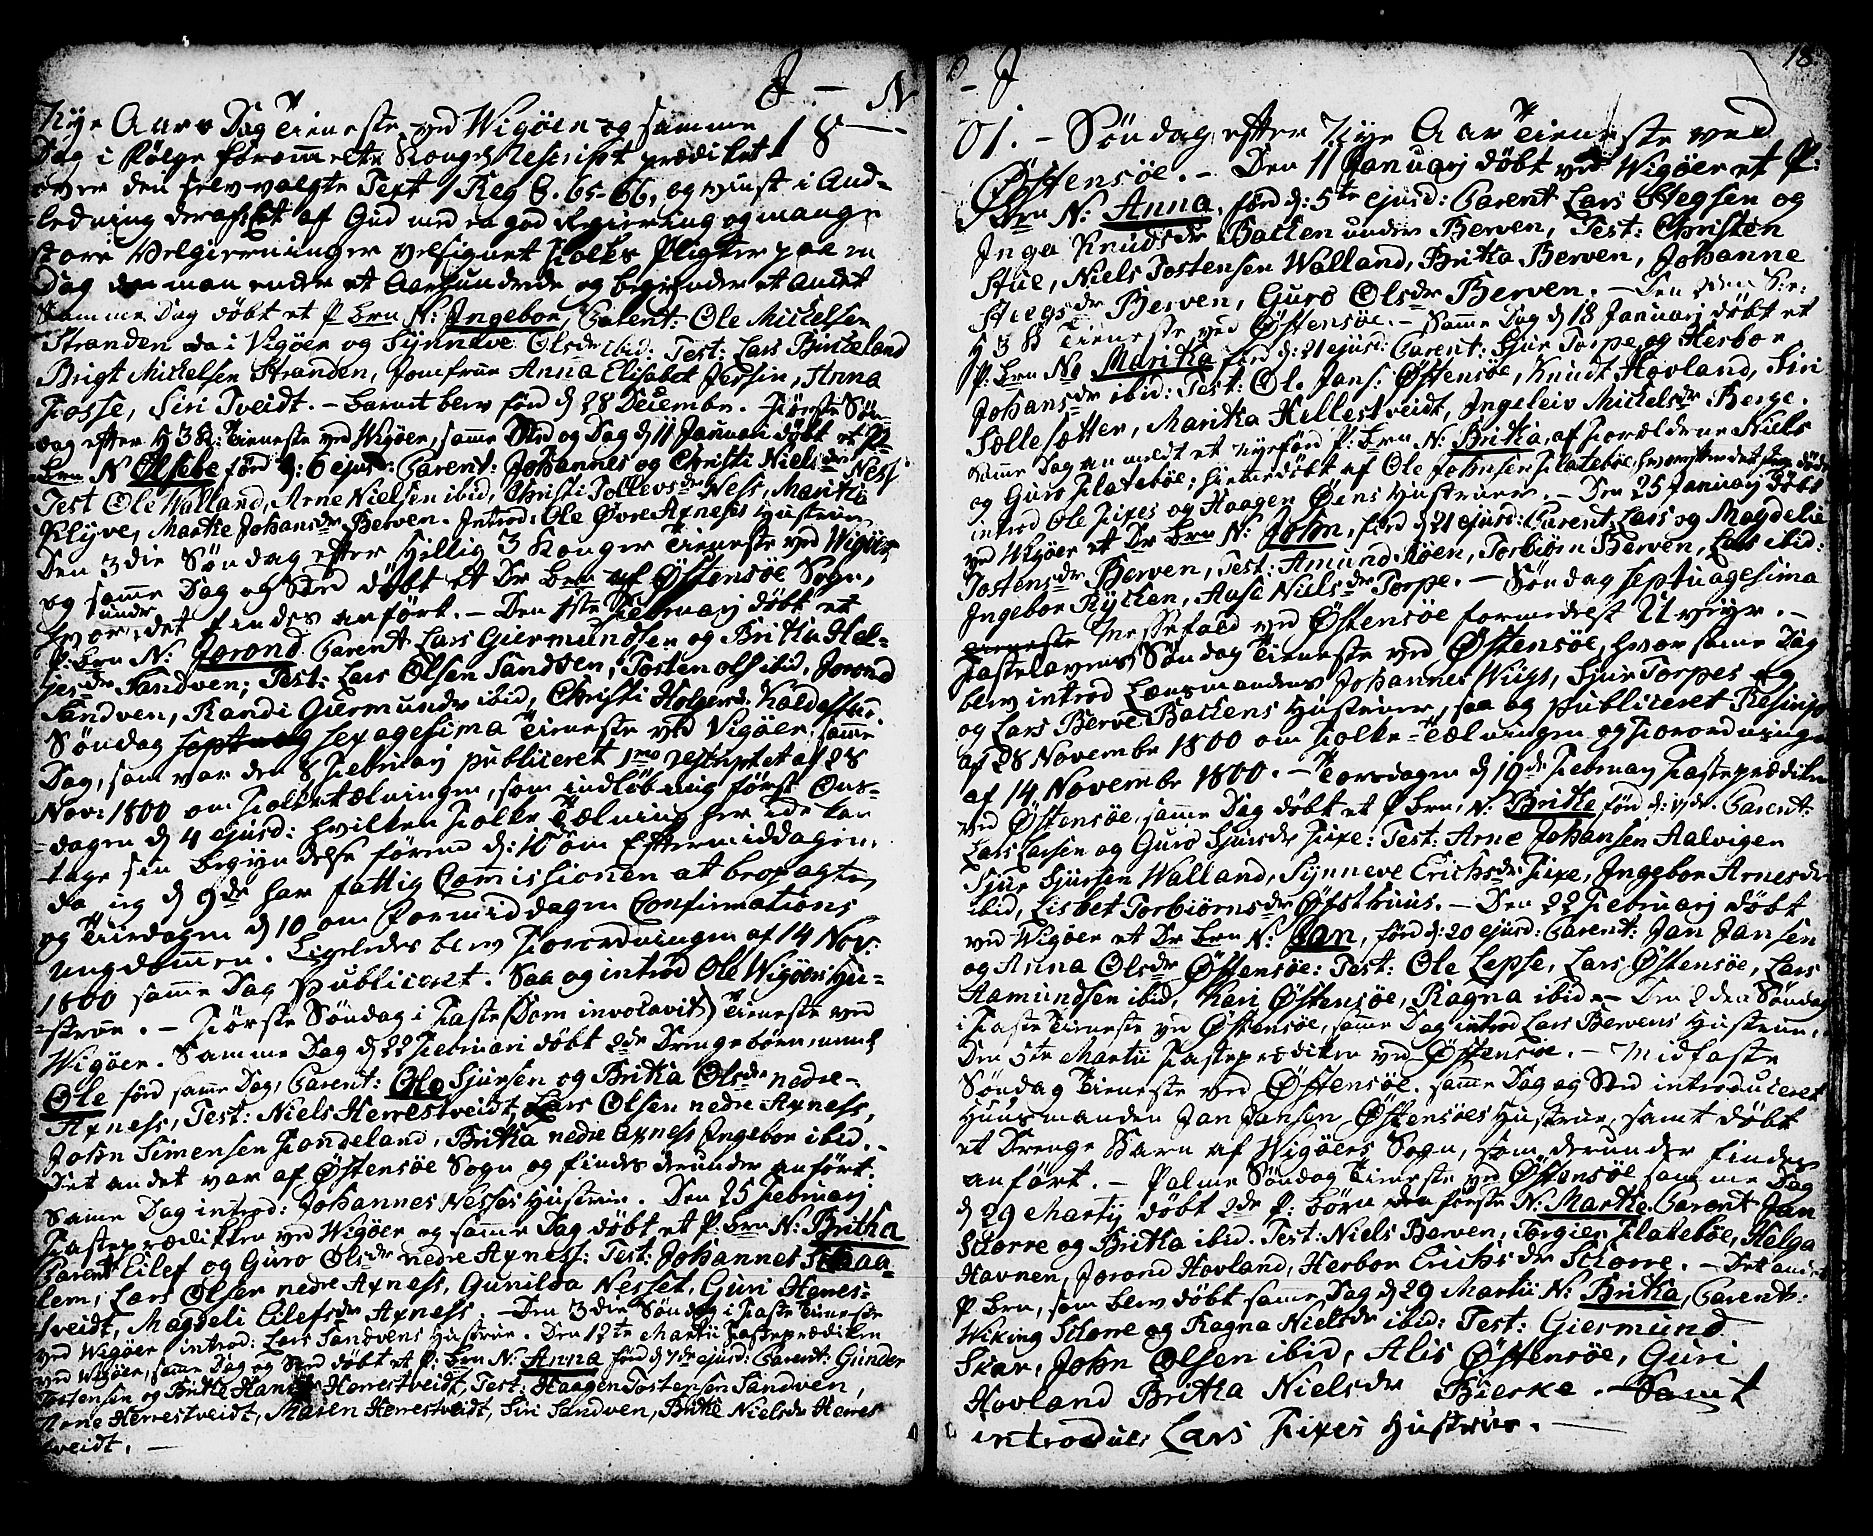 J. - N
Nye Aars Dag Tieneste ved Wigøen og samme
Dag i følge forommelte Kongel Rescript prædiket
over den selv valgte Text 1 Reg 8. 65-66, og viist i And-
ledning deraf: Et af Gud med en god Regiering og mange
store Velgierninger velsignet Folks Pligter paa en
Dag da man ender et Aarhundrede og begynder et andet
Samme Dag døbt et P. Brn N: Ingebor, Parent: Ole Mickelsen
Stranden i Vigøer og Synneve Olsdr ibid: Test: Lars Birkeland
Brigt Mickelsen Stranden, Jomfrue Anna Elisabet Jersin, Anna
Fosse, Siri Tveidt. - Barnet blev fød d 28 Decembr. Første Søn-
dag efter H 3 K: Tieneste ved Wigøer, samme Sted og Dag d 11 Januari døbt et P:
Brn N Olsebe fød d: 6 ejusd: Parent: Johannes og Christi Nielsdr Ness
Test Ole Walland, Arne Nielsen ibid, Christi Tollevsdr Ness, Marita
Klyve, Marthe Johansdr Berven. Introd: Ole Øvre Axness Hustrue
Den 3die Søndag efter Hellig 3 Konger Tieneste ved Wigøer
og samme Dag og Sted døbt et Dr Brn af Østensøe Sogn,
hvor under det findes anført. - Den 1ste Februarj døbt et
P: Brn N: Jorond Parent Lars Giermundsen og Britha Hel-
jesdr Sandven; Test: Lars Olsen Sandven, Tosten Ols ibid, Jorond
Sandven, Randi Giermundsdr ibid, Christi Holgersd: Koldestue.
Søndag Septuag Sexagesima Tieneste ved Vigøer, samme
Dag, som var den 8 Februarj publiceret 1mo rescriptet af 28
Nov: 1800 om Folketælningen, som indløb mig først Ons-
dagen d 4 ejusd: hvilken Folke Tælning her ide kan
tage sin Begyndelse førend d: 10 om Eftermiddagen,
da jeg d 9de har fattig Commissionen at bepagte,
og Tiirdagen d 10 om Formiddagen Confirmations
ungdommen. Ligeledes blev Forordningen af 14 Nov:
1800 samme Dag publiceret. Saa og introd Ole Wigøers Hu-
strue. - Første Søndag i Faste (Dom involavit) Tieneste ved
Wigøer. Samme Dag d 22 Februari døbt 2de Drengebørn, neml
Ole fød samme Dag, Parent: Ole Sjursen og Britha Olsdr nedre-
Axness, Test: Niels Herrestveidt, Lars Olsen nedre Axness,
John Simensen Fandeland, Britha nedre Axness Ingebor ibid. -
Det andet var af Østensøe Sogn og findes derunder anført.
Samme Dag introd: Johannes Nesses Hustrue. Den 25 Februarj
Fasteprædikken ved Wigøer og samme Dag døbt et P. Brn N: Britha
Parent Eilef og Guro Olsdr nedre Axness: Test: Johannes Skaaa-
lem, Lars Olsen nedre Axness, Gunilda Nesset, Guri Hanes-
tveidt, Magdeli Eilefsdr Axness. - Den 3die Søndag i Faste Tieneste
ved Wigøer introd: Lars Sandvens Hustrue. Den 12te Martii Fasteprædiken
ved Wigøer, samme Dag og Sted døbt et P: Brn N: Anna fød d 7de ejusd: Parent: Gunder
Tostensen og Britha Hansdr Herrestveidt, Test: Haagen Tostensen Sandven,
Arne Herrestveidt, Maren Herrestveidt, Siri Sandven, Britha Nielsdr Herres
tveidt. -
18
- J
18
01. - Søndag efter Nye Aar Tieneste ved
Østensøe. - Den 11 Januarj døbt ved Wigøer et P:
Brn N: Anna, fød d: 5te ejusd: Parent Lars Stegsen og
Inga Knudsdr Backen under Berven, Test: Christen
Stue, Niels Tostensen Walland, Britha Berven, Johanne
Stiegsdr Berven, Guro Olsdr Berven. - Den 2den S: e:
H 3 K Tieneste ved Østensøe. - Samme Dag d 18 Januarj døbt et
P: Brn No Maritha fød d: 21 ejusd: Parent: Sjur Torpe og Herbor
Johansdr ibid: Test: Ole Jans: Østensøe, Knudt Hovland, Siri
Sollesætter, Maritha Hellestveidt, Ingeleiv Mickelsdr Berge.
Samme Dag anmeldt et nyefød P: Brn N: Britha, af Forældrene Niels
og Guro Flatebøe; hiemedøbt af Ole Johnsen Flatebøe, hvorefter det strax døde
introd Ole Fixes og Haagen Øens Hustruer. - Den 25 Januarj døbt
ved Wigøer et Dr Brn N: John, fød d 21 ejusd: Parent: Lars og Magdelie
Tostensdr Berven, Test: Amund Røen, Torbiørn Berven, Lars ibid:
Ingebor Rycken, Aase Nielsdr Torpe. - Søndag Septuagesima
Tieneste Messefald ved Østensøe formedelst Uveyr. -
Fastelavens Søndag Tieneste ved Østensøe, hvor samme Dag
blev introd Lænsmandens Johannes Wiigs, Sjur Torpes og
og Lars Berve-Backens Hustruer, saa og publiceret Rescript
af 28 Novembr 1800 om Folke-Tælningen og Forordningen
af 14 Novembr 1800. - Torsdagen d 19de Februarj Fasteprædiken
ved Østensøe, samme Dag døbt et P. Brn, N: Brithe fød d: Parent:
Lars Larsen og Guro Sjursdr Fixe: Test: Arne Johansen Aalvigen
Sjur Sjursen Walland, Synneve Erichsdr Fixe, Ingebor Arnesdr
ibid, Lisbet Torbiørnsdr Øfsthuus. - Den 22 Februarj døbt
ved Wigøer et Dr Brn N: Jan, fød d: 20 ejusd: Parent: Jan Jansen
og Anna Olsdr Østensøe: Test: Ole Lepse, Lars Østensøe, Lars
Aamundsen ibid, Kari Østensøe, Ragna ibid. - Den 2den Søndag
i Faste Tieneste ved Østensøe, samme Dag introd Lars Bervens Hustrue,
Den 5te Martii Fasteprædiken ved Østensøe. - Midfaste
Søndag Tieneste ved Østensøe. samme Dag og Sted introduceret
Huusmanden Jan Jansen Østensøes Hustrue, samt døbt
et Drenge Barn af Wigøers Sogn, som derunder findes
anført. - Palme Søndag Tieneste ved Østensøe samme Dag
d 29 Martij døbt 2de P: Børn den første N: Marthe. Parent Jan
Skorre og Britha ibid. Test: Niels Berven, Torgier Flatebøe, Helga
Havnen, Jorond Hovland, Herbor Erichsdr Skorre. - Det andet
P. Brn, som blev døbt samme Dag d 29 Martii N: Britha, Parent:
Wiking Skorre og Ragna Nielsdr ibid: Test: Giermund
Skar, John Olsen ibid, Alis Østensøe, Guri
Hovland Britha Nielsdr Bierke. - Samt
introduc Lars Fixes Hustrue. -